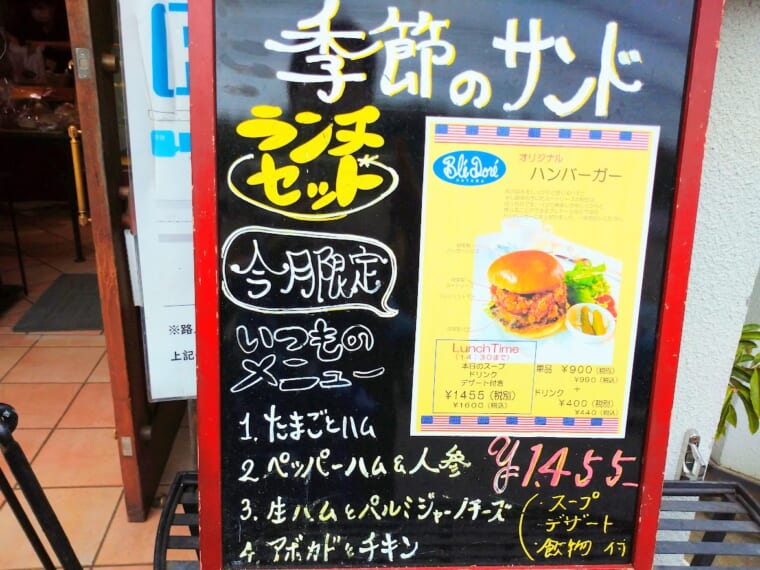 季節のサンド
ランチ
セット
今月限定
いつもの
メニュー
1. たまごとハム
2. ペッパーハム&人参
3. 生ハムとパルミジャーノチーズ
4. アボカドとチキン
¥1.455-
スープ
デザート
飲物 付
Blé Doré
オリジナル
ハンバーガー
Lunch Time
(14:30まで)
本日のスープ
ドリンク
デザート付き
¥1455(税別)
¥1600(税込)
単品 ¥900(税別)
¥990(税込)
+
ドリンク
¥400(税別)
¥440(税込)
※路
上記